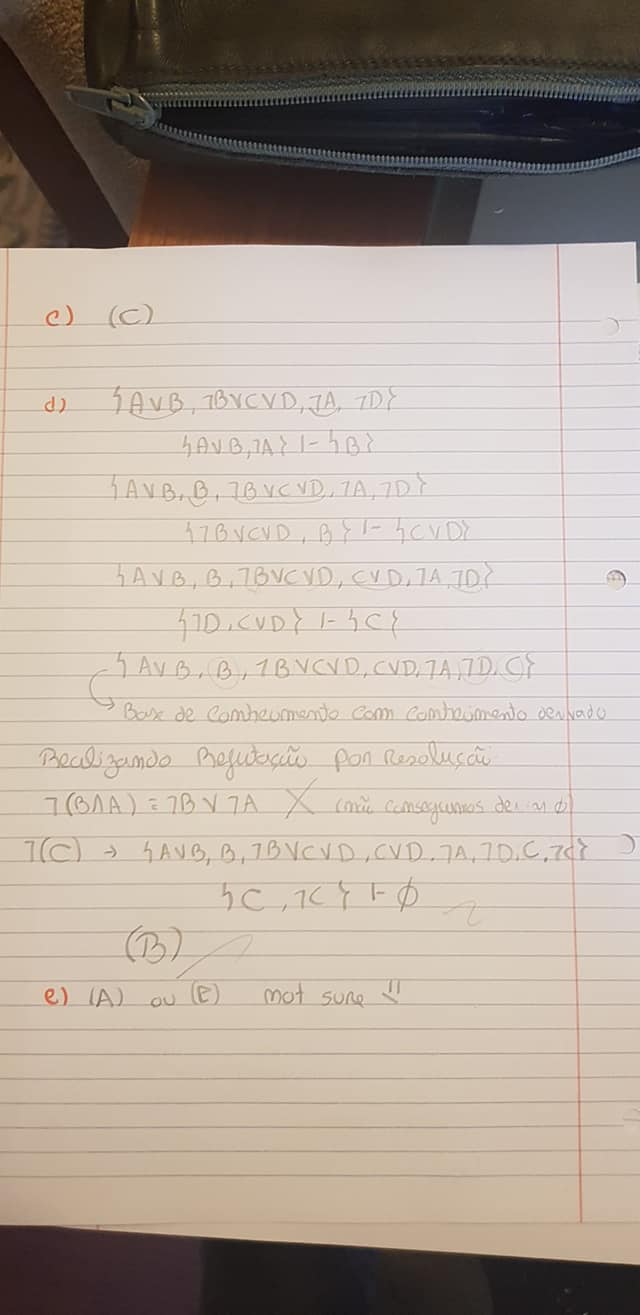 c) (C)
d) {A∨B, ¬B∨C∨D, ¬A, ¬D}
{A∨B, ¬A} |- {B}
{A∨B, B, ¬B∨C∨D, ¬A, ¬D}
{¬B∨C∨D, B} |- {C∨D}
{A∨B, B, ¬B∨C∨D, C∨D, ¬A, ¬D}
{¬D, C∨D} |- {C}
{A∨B, B, ¬B∨C∨D, C∨D, ¬A, ¬D, C}
Base de Conhecimento com conhecimento derivado
Realizando Refutação por Resolução
¬(B∧A) = ¬B∨¬A X (não conseguimos ∅)
¬(C) → {A∨B, B, ¬B∨C∨D, C∨D, ¬A, ¬D, C, ¬C}
{C, ¬C} |- ∅
(B)
e) (A) ou (E) not sure !!